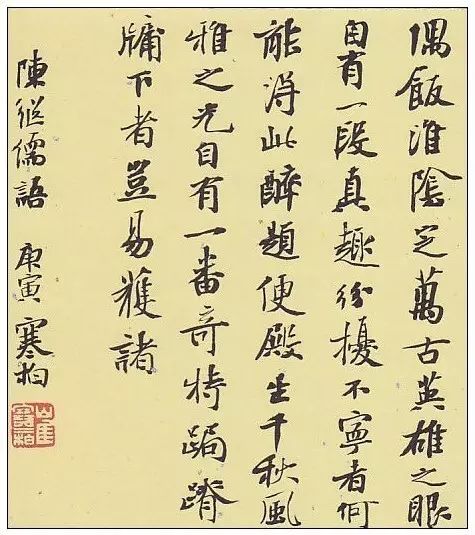 偶飯淮陰定萬古英雄之眼
自有一段真趣紛擾不寧者何
能得此醉題便殿生千秋風
雅之光自有一番奇特跼蹐
牖下者豈易獲諸
陳繼儒語 庚寅 寒柏
崔寒柏